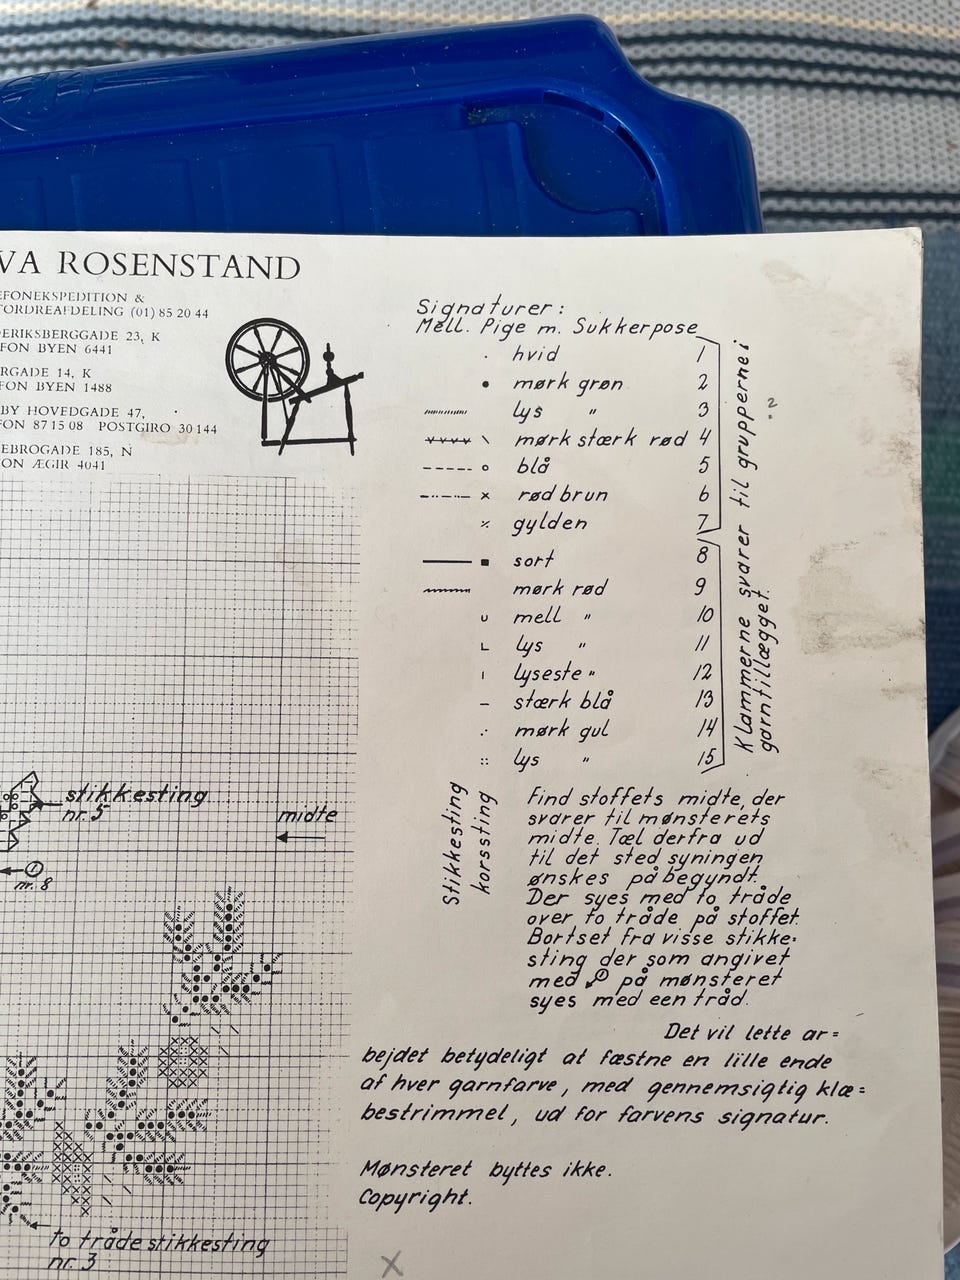 VA ROSENSTAND
EFONEKSPEDITION &
TORDREAFDELING (01) 85 20 44
DERIKSBERGGADE 23, K
FON BYEN 6441
RGADE 14, K
FON BYEN 1488
BY HOVEDGADE 47,
FON 87 15 08 POSTGIRO 30 144
EBROGADE 185, N
ON ÆGIR 4041
Signaturer:
Mell. Pige m. Sukkerpose
hvid 1
mørk grøn 2
lys " 3
mørk stærk rød 4
blå 5
rød brun 6
gylden 7
sort 8
mørk rød 9
mell " 10
lys " 11
lyseste " 12
stærk blå 13
mørk gul 14
lys " 15
Klammerne svarer til grupperne i
garntillægget.
?
Stikkesting
korssting
stikkesting
nr. 5
midte
1
nr. 8
Find stoffets midte, der
svarer til mønsterets
midte. Tæl derfra ud
til det sted syningen
ønskes påbegyndt.
Der syes med to tråde
over to tråde på stoffet.
Bortset fra visse stikke=
sting der som angivet
med 1 på mønsteret
syes med een tråd.
Det vil lette ar=
bejdet betydeligt at fæstne en lille ende
af hver garnfarve, med gennemsigtig klæ=
bestrimmel, ud for farvens signatur.
Mønsteret byttes ikke.
Copyright.
to tråde stikkesting
nr. 3
X